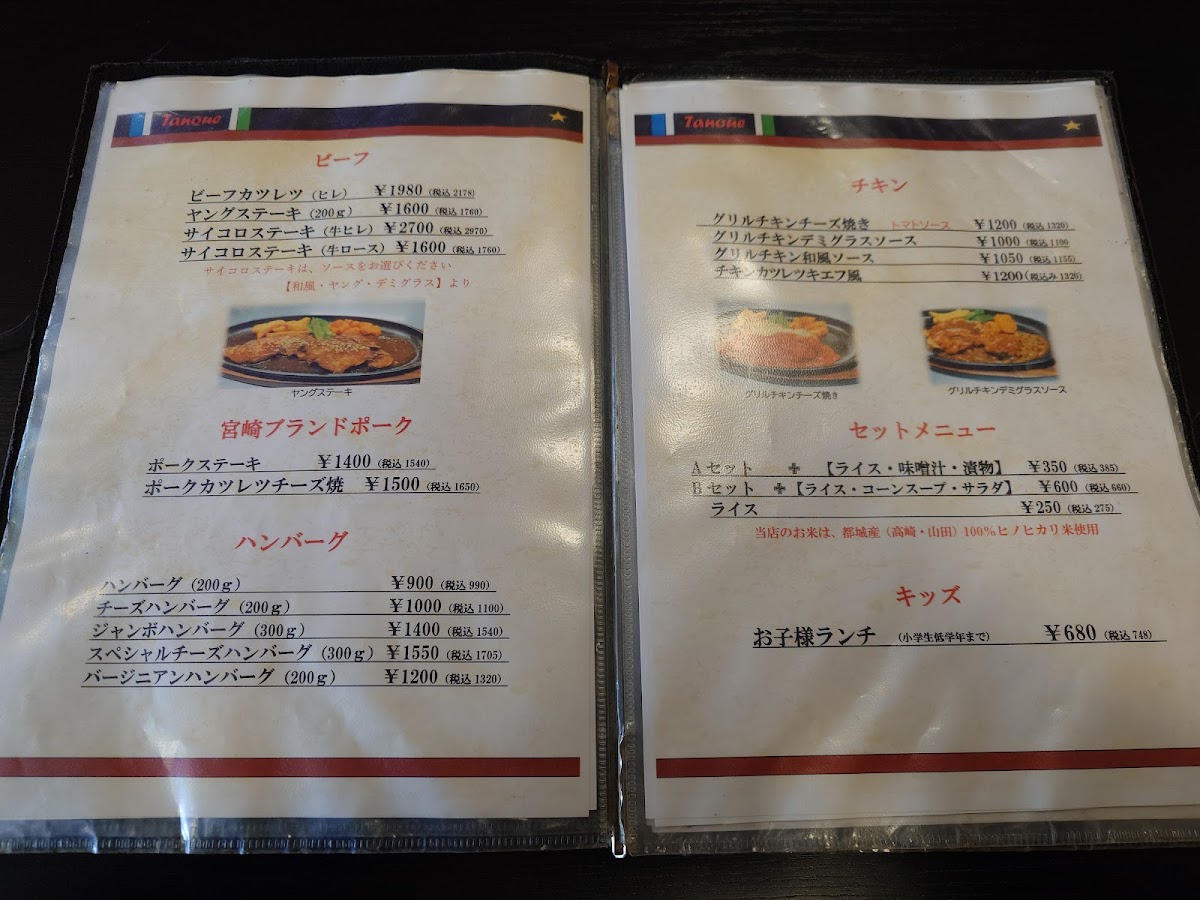 Tanoue
ビーフ
ビーフカツレツ（ヒレ） ￥1980（税込2178）
ヤングステーキ（200ｇ） ￥1600（税込1760）
サイコロステーキ（牛ヒレ）￥2700（税込2970）
サイコロステーキ（牛ロース）￥1600（税込1760）
サイコロステーキは、ソースをお選びください
【和風・ヤング・デミグラス】より
ヤングステーキ
宮崎ブランドポーク
ポークステーキ ￥1400（税込1540）
ポークカツレツチーズ焼 ￥1500（税込1650）
ハンバーグ
ハンバーグ（200ｇ） ￥900（税込990）
チーズハンバーグ（200ｇ） ￥1000（税込1100）
ジャンボハンバーグ（300ｇ） ￥1400（税込1540）
スペシャルチーズハンバーグ（300ｇ）￥1550（税込1705）
バージニアンハンバーグ（200ｇ） ￥1200（税込1320）
Tanoue
チキン
グリルチキンチーズ焼き トマトソース ￥1200（税込1320）
グリルチキンデミグラスソース ￥1000（税込1100
グリルチキン和風ソース ￥1050（税込1155）
チキンカツレツキエフ風 ￥1200（税込み1320）
グリルチキンチーズ焼き
グリルチキンデミグラスソース
セットメニュー
Aセット ✙ 【ライス・味噌汁・漬物】 ￥350（税込385）
Bセット ✙【ライス・コーンスープ・サラダ】 ￥600（税込660）
ライス ￥250（税込275）
当店のお米は、都城産（高崎・山田）100%ヒノヒカリ米使用
キッズ
お子様ランチ （小学生低学年まで） ￥680（税込748）